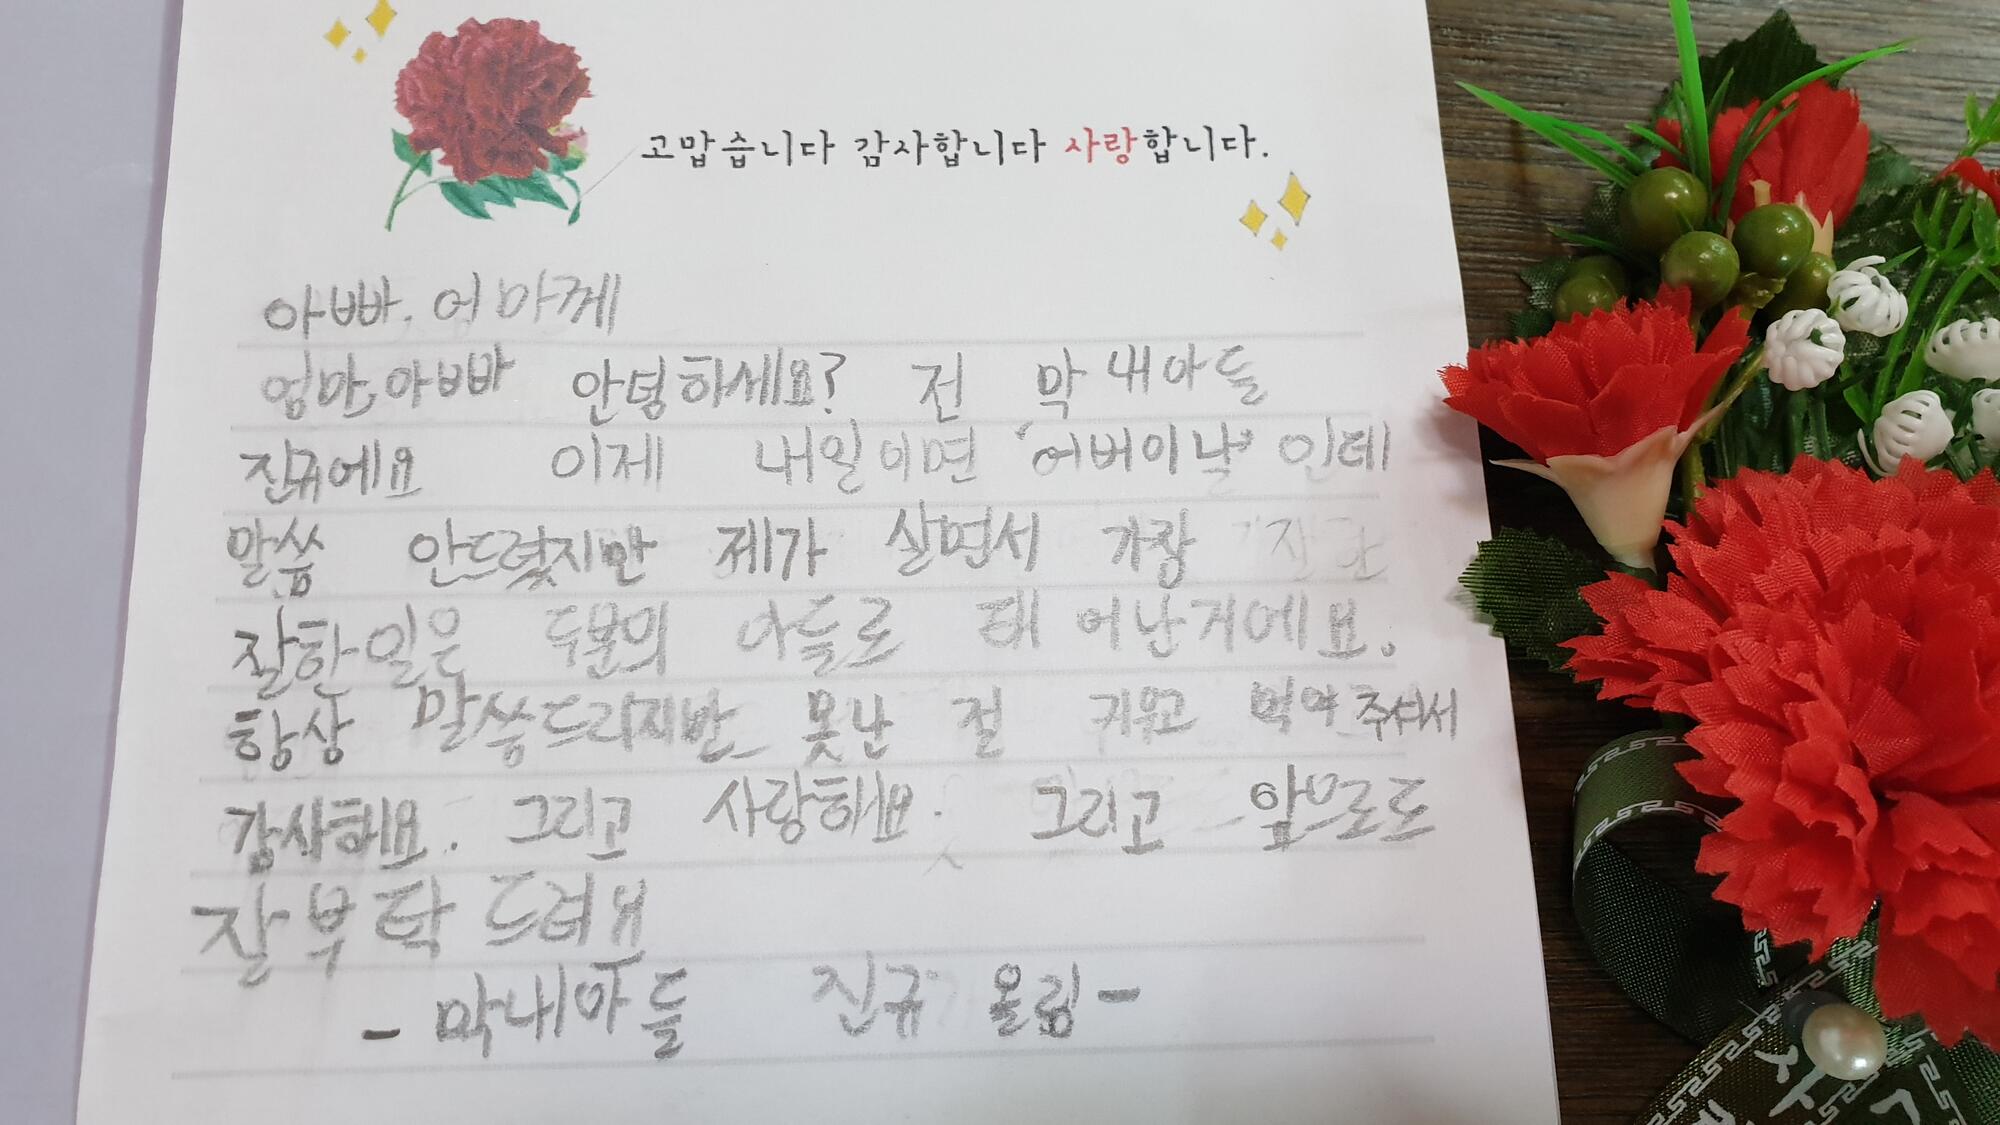 고맙습니다 감사합니다 사랑합니다.
아빠. 어마께
엄마, 아빠 안녕하세요? 전 막내아들
진규에요 이제 내일이면 '어버이날' 인데
말씀 안드렸지만 제가 살면서 가장
잘한일은 두분의 아들로 태어난거에요.
항상 말씀드리지만 못난 절 키우고 먹여주셔서
감사해요. 그리고 사랑해요. 그리고 앞으로도
잘부탁드려요
- 막내아들 진규 올림 -